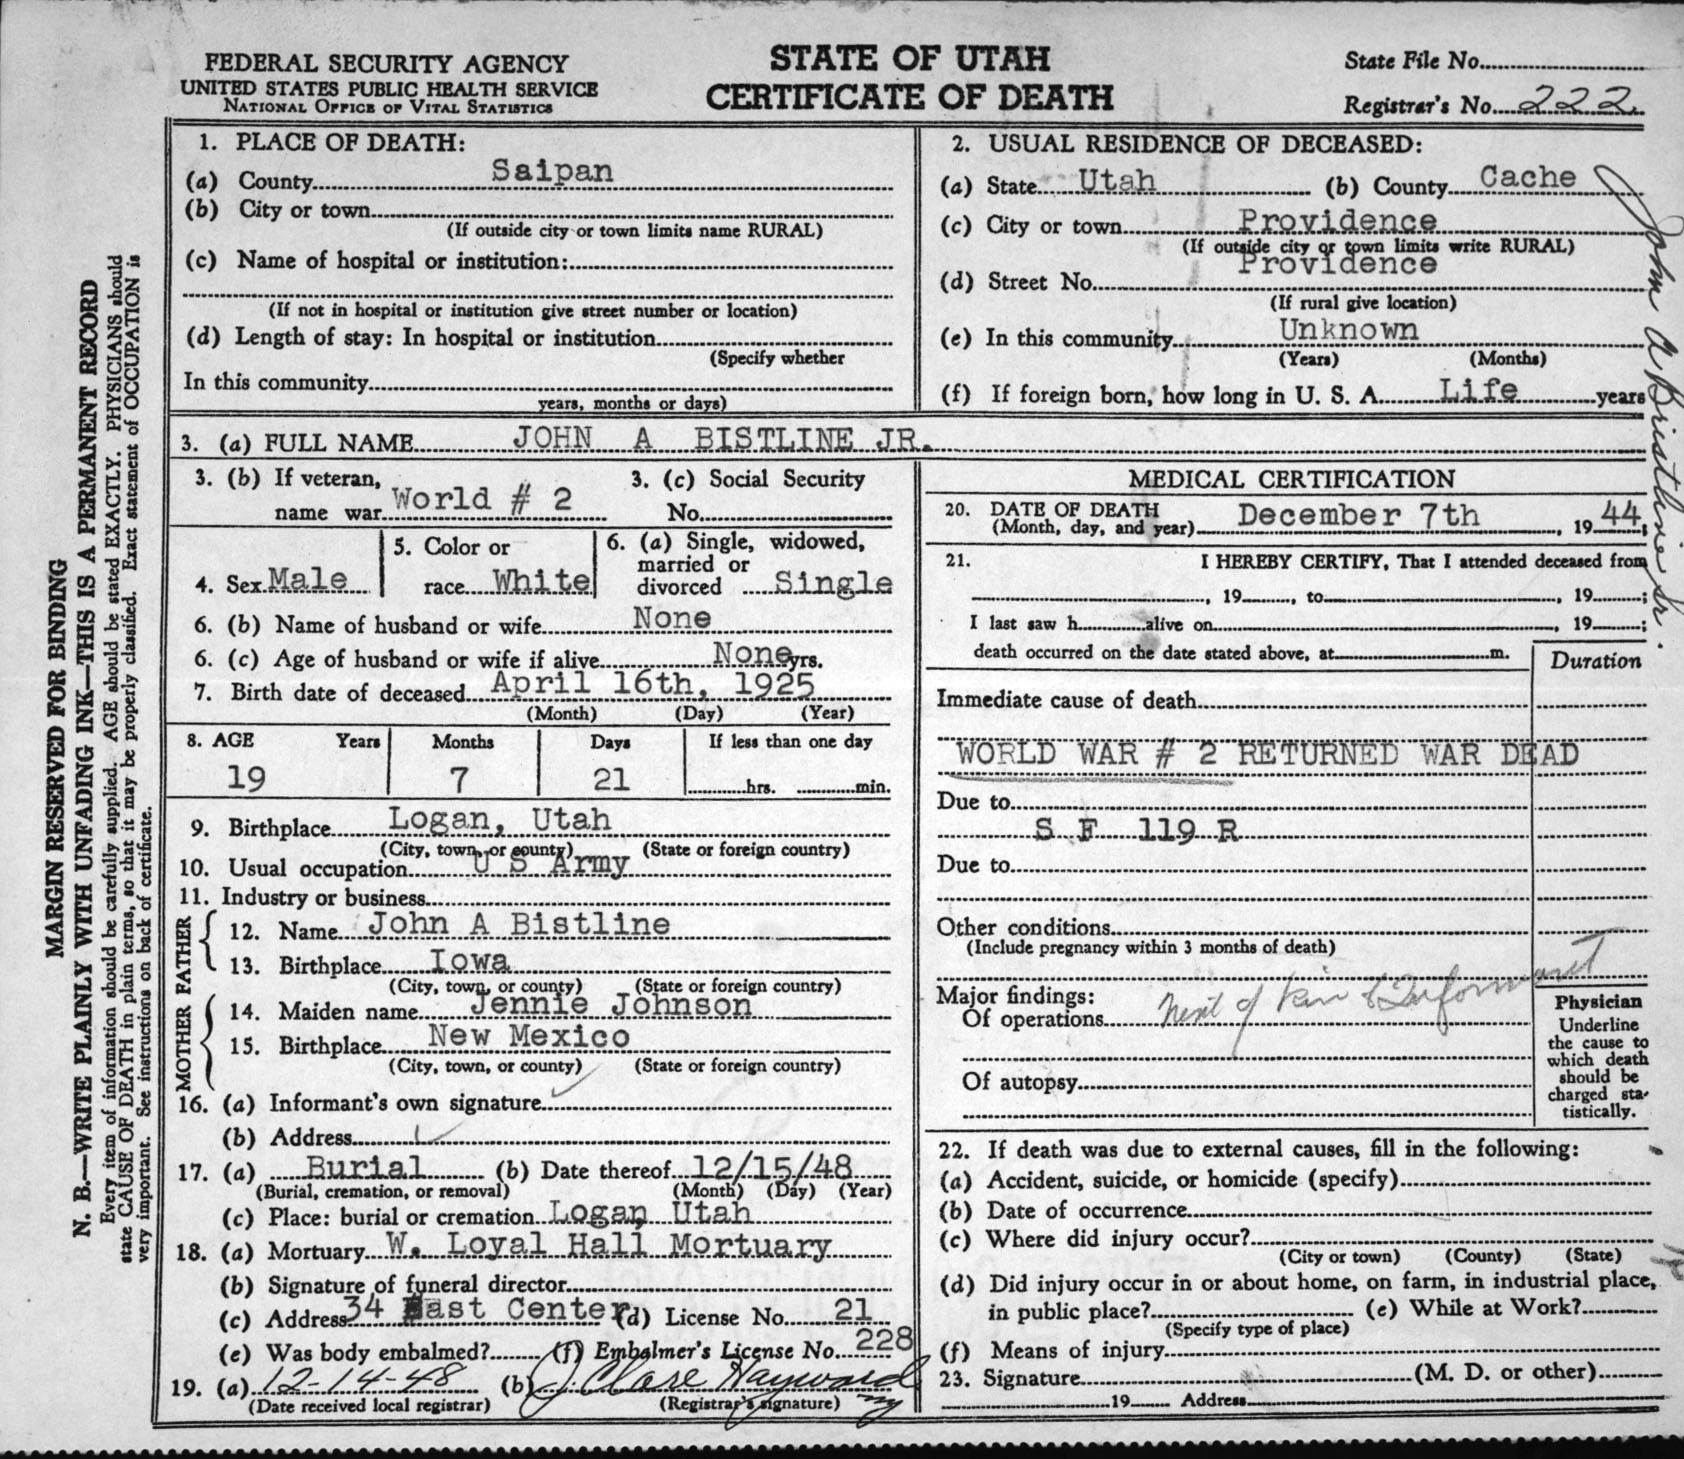 FEDERAL SECURITY AGENCY
UNITED STATES PUBLIC HEALTH SERVICE
NATIONAL OFFICE OF VITAL STATISTICS
STATE OF UTAH
CERTIFICATE OF DEATH
State File No.
Registrar's No. 222
MARGIN RESERVED FOR BINDING
N. B.—WRITE PLAINLY WITH UNFADING INK—THIS IS A PERMANENT RECORD
Every item of information should be carefully supplied. AGE should be stated EXACTLY. PHYSICIANS should
state CAUSE OF DEATH in plain terms, so that it may be properly classified. Exact statement of OCCUPATION is
very important. See instructions on back of certificate.
1. PLACE OF DEATH:
(a) County Saipan
(b) City or town
(If outside city or town limits name RURAL)
(c) Name of hospital or institution:
(If not in hospital or institution give street number or location)
(d) Length of stay: In hospital or institution
(Specify whether
In this community
years, months or days)
2. USUAL RESIDENCE OF DECEASED:
(a) State Utah (b) County Cache
(c) City or town Providence
(If outside city or town limits write RURAL)
(d) Street No. Providence
(If rural give location)
(e) In this community Unknown
(Years) (Months)
(f) If foreign born, how long in U. S. A. Life years
John A Bistline Sr.
3. (a) FULL NAME JOHN A BISTLINE JR.
3. (b) If veteran, name war World # 2
3. (c) Social Security No.
4. Sex Male
5. Color or race White
6. (a) Single, widowed, married or divorced Single
6. (b) Name of husband or wife None
6. (c) Age of husband or wife if alive None yrs.
7. Birth date of deceased April 16th, 1925
(Month) (Day) (Year)
8. AGE Years Months Days If less than one day
19 7 21 hrs. min.
9. Birthplace Logan, Utah
(City, town, or county) (State or foreign country)
10. Usual occupation U S Army
11. Industry or business
FATHER
12. Name John A Bistline
13. Birthplace Iowa
(City, town, or county) (State or foreign country)
MOTHER
14. Maiden name Jennie Johnson
15. Birthplace New Mexico
(City, town, or county) (State or foreign country)
16. (a) Informant's own signature
(b) Address
17. (a) Burial (b) Date thereof 12/15/48
(Burial, cremation, or removal) (Month) (Day) (Year)
(c) Place: burial or cremation Logan Utah
18. (a) Mortuary W. Loyal Hall Mortuary
(b) Signature of funeral director
(c) Address 34 East Center (d) License No. 21
(e) Was body embalmed? (f) Embalmer's License No. 228
19. (a) 12-14-48 (b) J. Clare Hayward
(Date received local registrar) (Registrar's signature)
MEDICAL CERTIFICATION
20. DATE OF DEATH
(Month, day, and year) December 7th, 19 44;
21. I HEREBY CERTIFY, That I attended deceased from
, 19 , to , 19 ;
I last saw h alive on , 19 ;
death occurred on the date stated above, at m.
Duration
Immediate cause of death
WORLD WAR # 2 RETURNED WAR DEAD
Due to
S F 119 R
Due to
Other conditions
(Include pregnancy within 3 months of death)
Major findings:
Of operations Next of Kin & Informant
Of autopsy
Physician
Underline
the cause to
which death
should be
charged sta-
tistically.
22. If death was due to external causes, fill in the following:
(a) Accident, suicide, or homicide (specify)
(b) Date of occurrence
(c) Where did injury occur?
(City or town) (County) (State)
(d) Did injury occur in or about home, on farm, in industrial place,
in public place? (e) While at Work?
(Specify type of place)
(f) Means of injury
23. Signature (M. D. or other)
19 Address